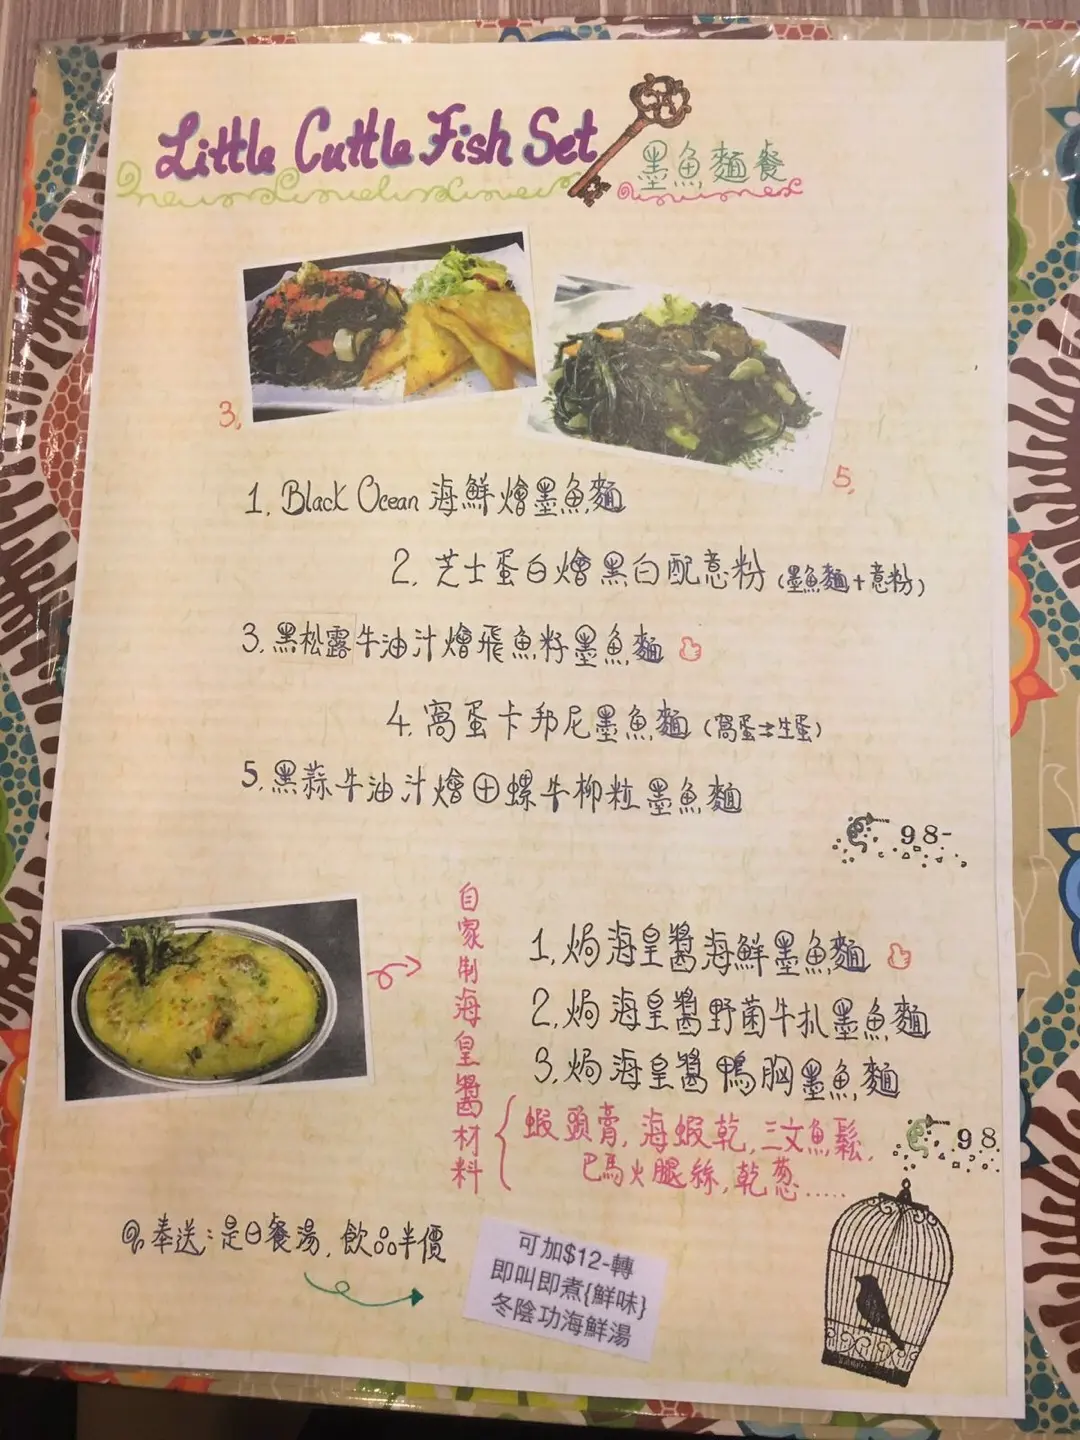 Little Cuttle Fish Set
墨魚麵餐
3.
5.
1. Black Ocean 海鮮燴墨魚麵
2. 芝士蛋白燴黑白配意粉 (墨魚麵+意粉)
3. 黑松露牛油汁燴飛魚籽墨魚麵
4. 窩蛋卡邦尼墨魚麵 (窩蛋=生蛋)
5. 黑蒜牛油汁燴田螺牛柳粒墨魚麵
98-
自家制海皇醬材料
1. 焗海皇醬海鮮墨魚麵
2. 焗海皇醬野菌牛扒墨魚麵
3. 焗海皇醬鴨胸墨魚麵
蝦頭膏, 海蝦乾, 三文魚鬆,
巴馬火腿絲, 乾葱.....
98
奉送: 是日餐湯, 飲品半價
可加$12-轉
即叫即煮{鮮味}
冬陰功海鮮湯